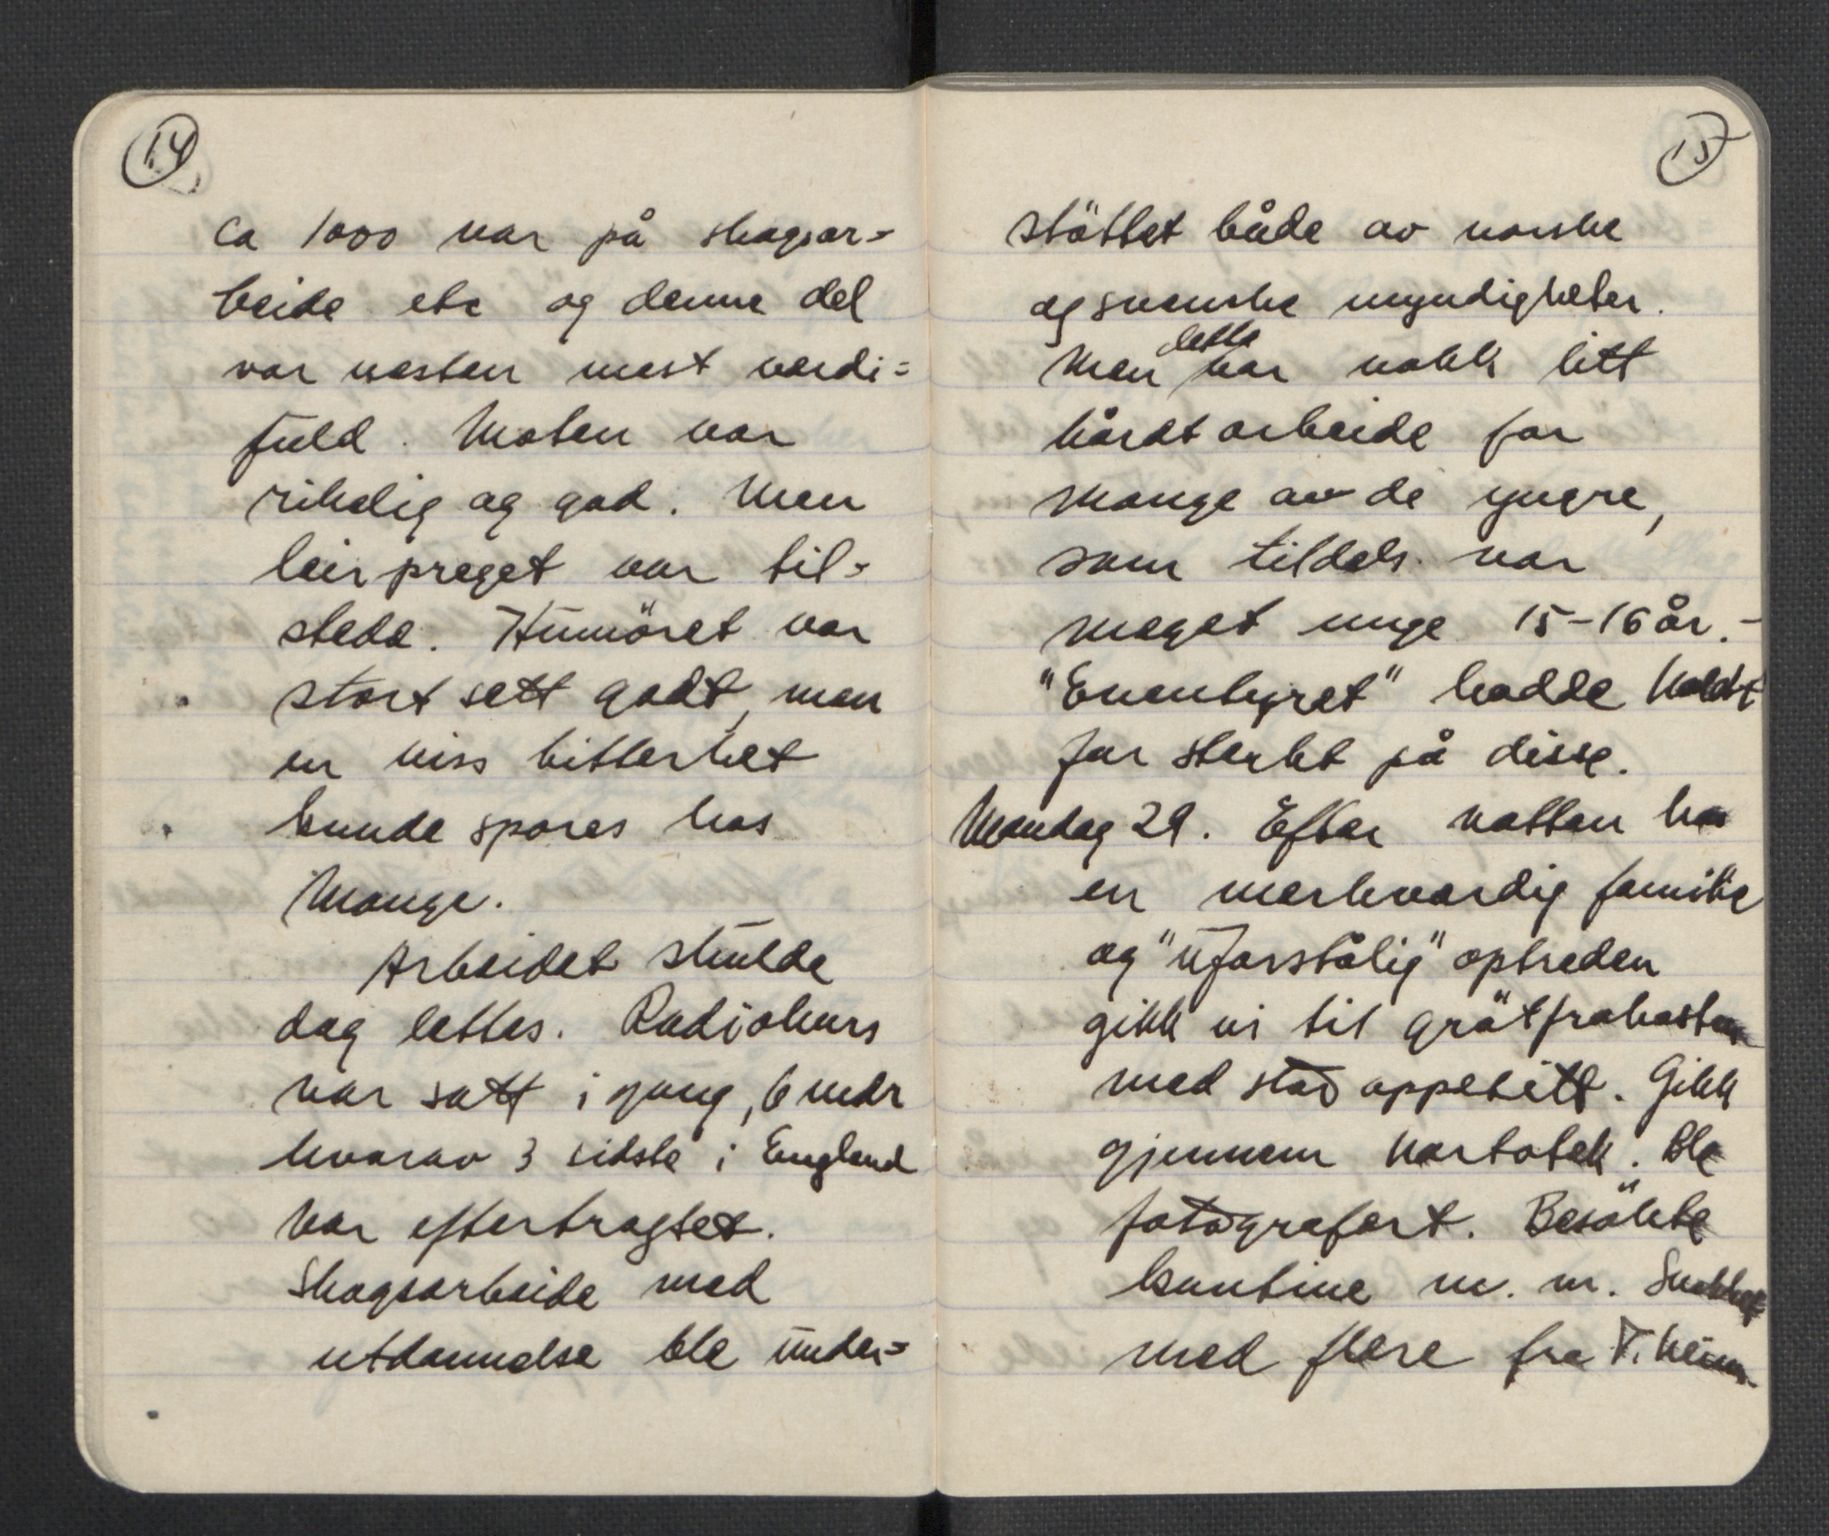 14
ca 1000 var på skogsar=
beide etc og denne del
var nesten mest verdi=
fuld. Maten var
rikelig og god. Men
leirpreget var til=
stede. Humöret var
stort sett godt, men
en viss bitterhet
kunde spores hos
mange.
Arbeidet skulde
dog lettes. Radiokurs
var satt i gang, 6 mdr
hvorav 3 sidste i England
var eftertragtet.
Skogsarbeide med
utdannelse ble under=
15
stöttet både av norske
og svenske myndigheter.
detta
Men var nokk litt
hårdt arbeide for
mange av de yngre,
som tildels var
meget unge 15-16 år.-
"Eventyret" hadde kaldt
for sterkt på disse.
Mandag 29. Efter natten hos
en merkverdig familie
og "uforstålig" optreden
gikk vi til grötfrokosten
med stor appetitt. Gikk
gjennem kartotek. Ble
fotografert. Besökte
kantine m. m. Snakket
med flere fra T.heim